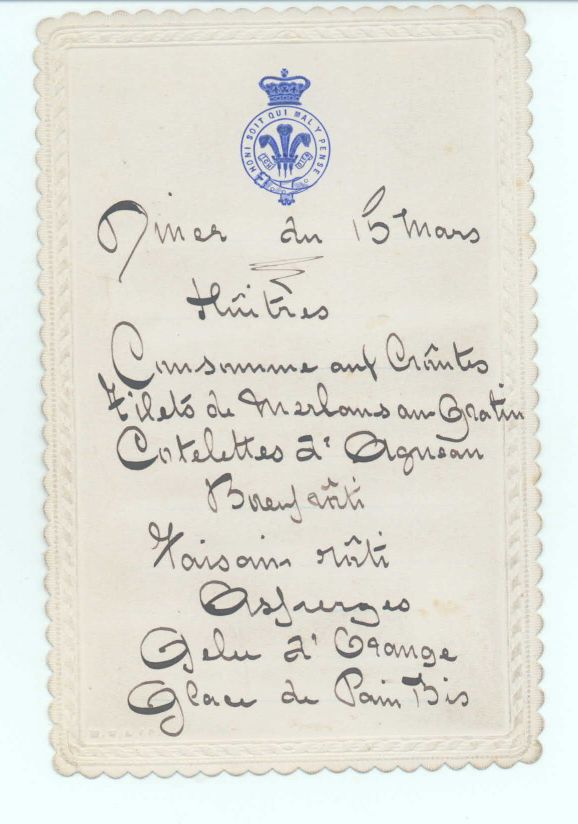 HONI SOIT QUI MAL Y PENSE
ICH DIEN
Diner du 15 Mars
Huîtrès
Consomme aux Croûtes
Filets de Merlans au Gratin
Cotelettes d'Agneau
Boeuf rôti
Faisain rôti
Asperges
Gelee d'Orange
Glace de Pain Bis